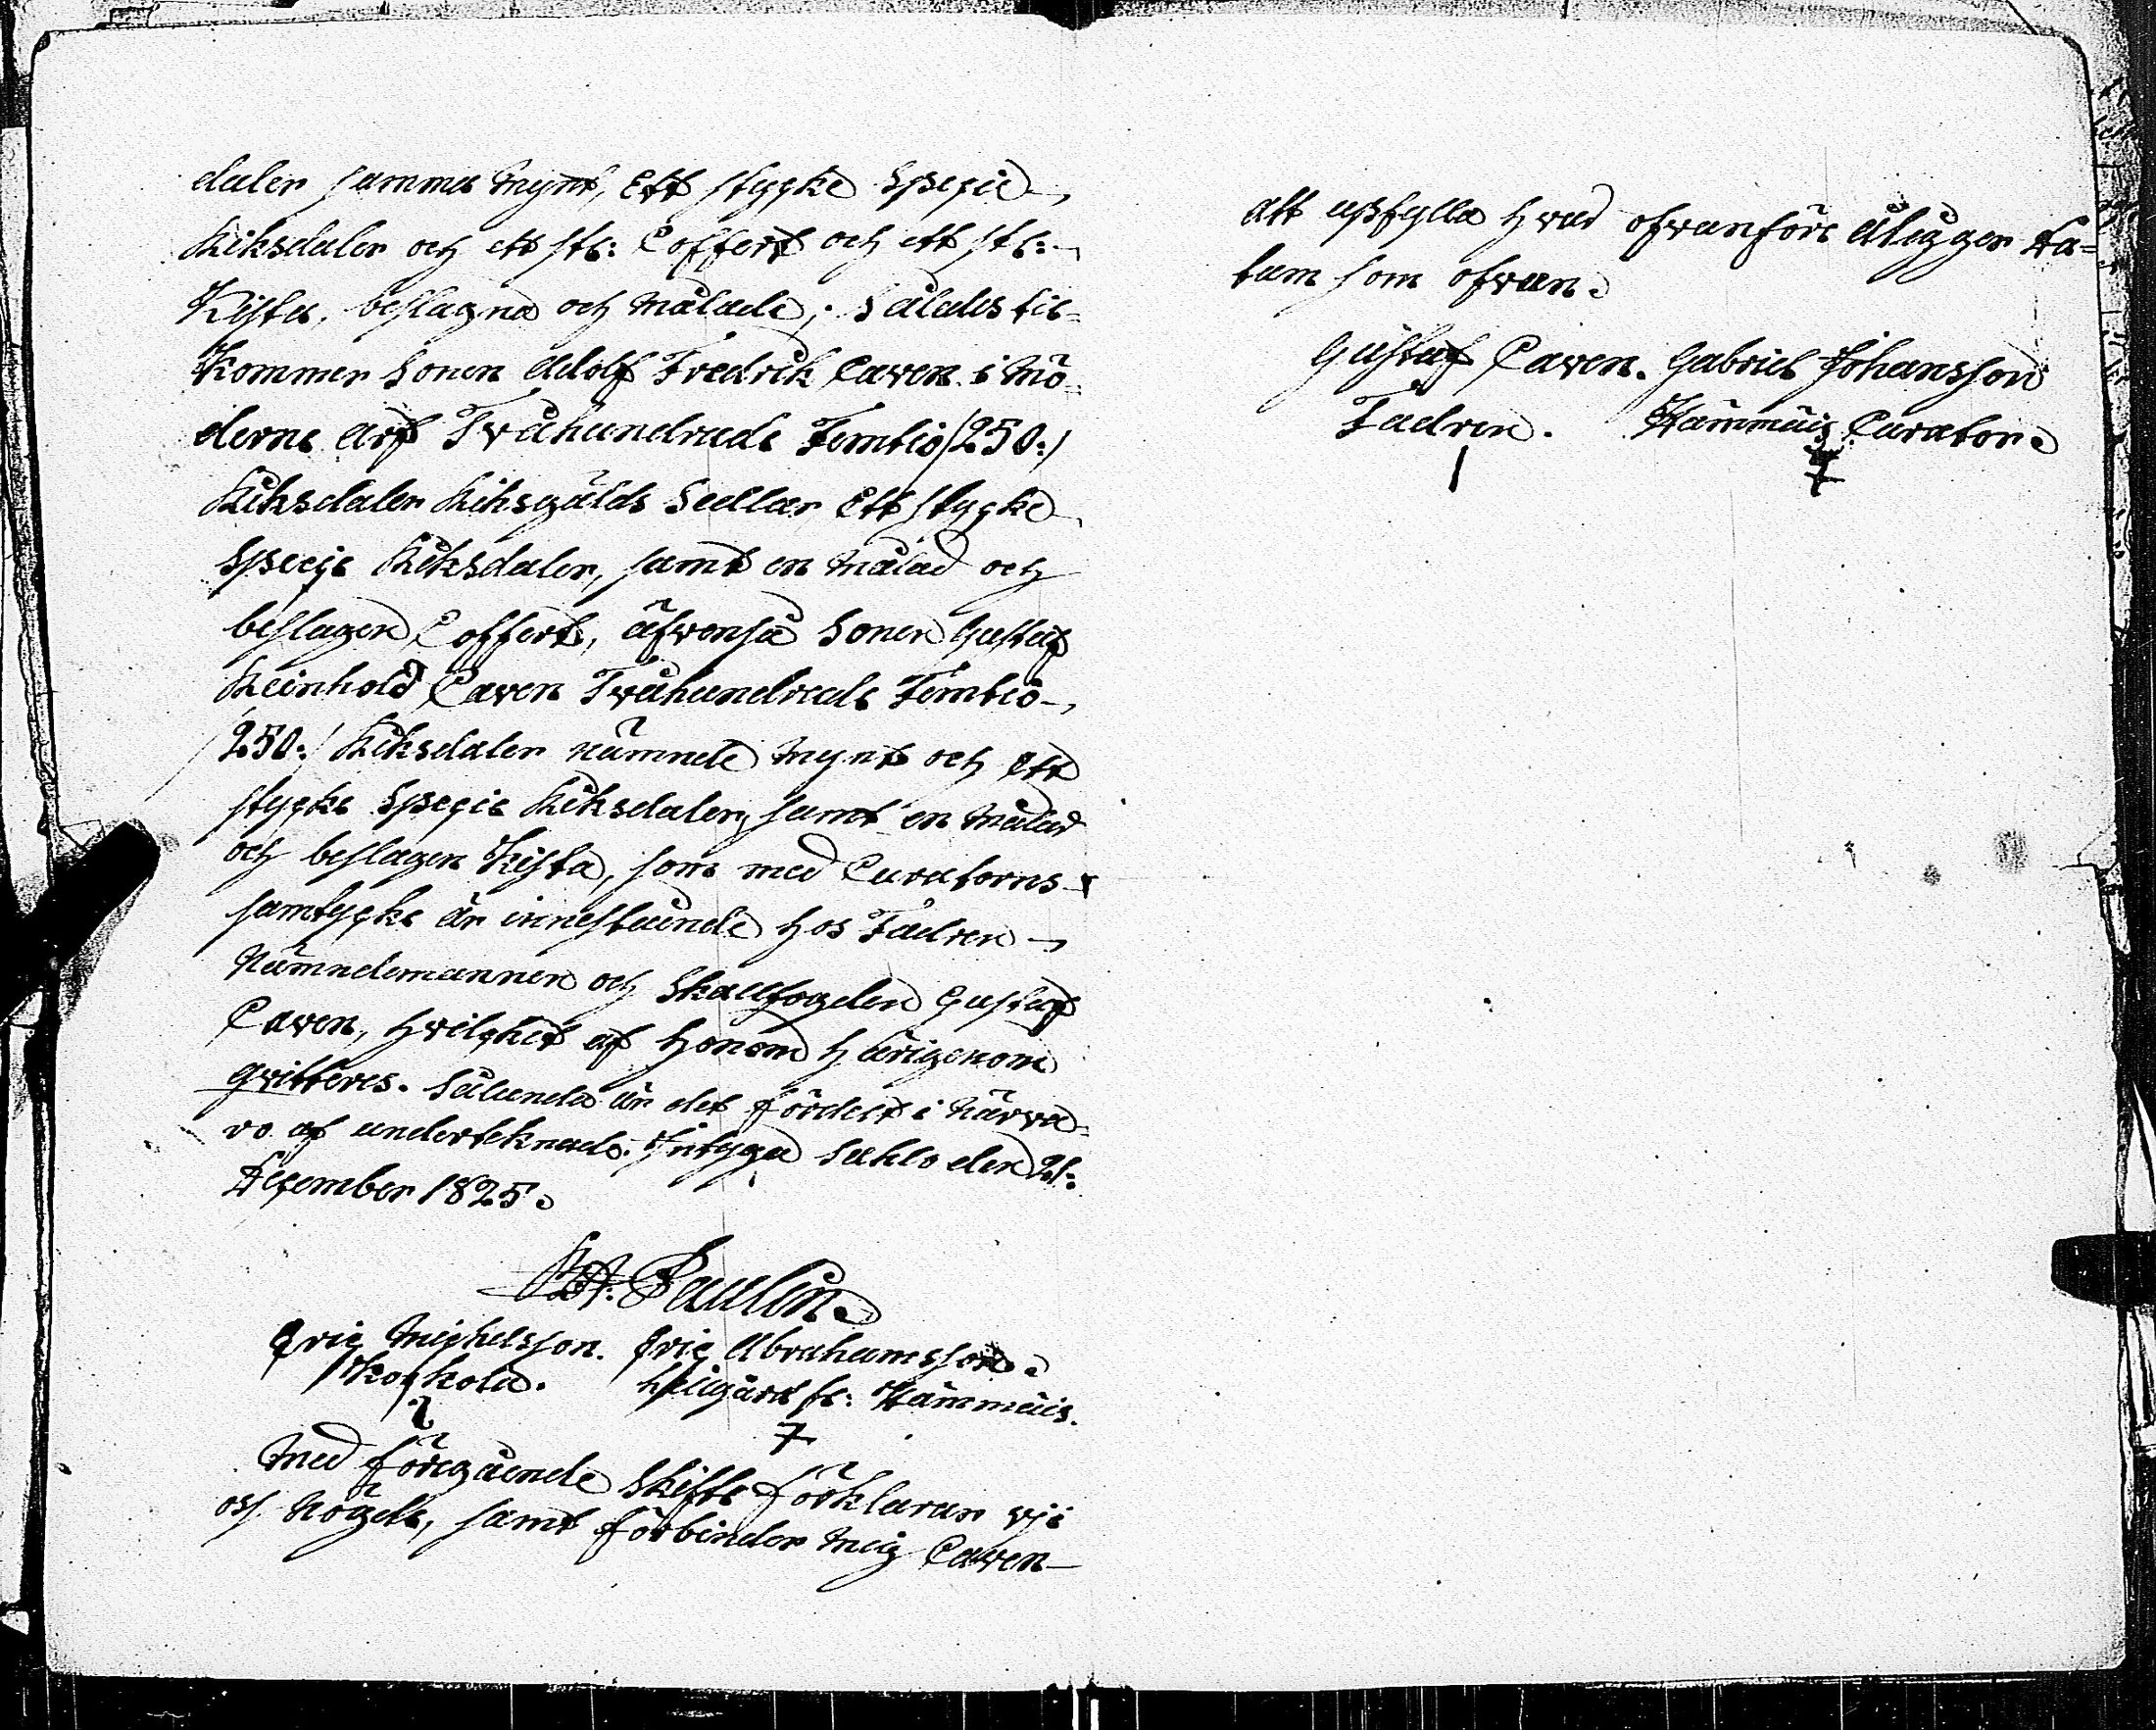 daler samma Mynt, Ett stycke Specie
Riksdaler och ett st: Coffert och ett st:
Kista, beslagna och Målade; Således til-
kommer Sonen Adolf Fredrik Caven i Mö-
derne arf Tvåhundrade Femtio /250:/
Riksdaler Riksgälds Sedlar Ett stycke
Specie Riksdaler, samt en Målad och
beslagen Coffert, äfvenså Sonen Gustaf
Reinhold Caven Tvåhundrade Femtio
/250:/ Riksdaler nämnde Mynt och Ett
stycke Specie Riksdaler, samt en Målad
och beslagen Kista, som med Curatorns
samtycke är innestående hos Fadren
Nämndemannen och Skallfogden Gustaf
Caven, hvilcket af honom härigenom
qvitteres. Sålunda är det fördelt i Närva-
ro af undertecknade. Intyga Saklo den 21:
December 1825.
Paulin
Eric Michelsson. Eric Abrahamsson
Kockola. Hämmäis.
Med föregående Skifte förklarar vji
oss Nögde, samt förbinder Mig Caven
att upfylla hvad ofvanföre åligger Da-
tum som ofvan.
Gustaf Caven. Gabriel Johansson
Fadren. Hämmäis Curator